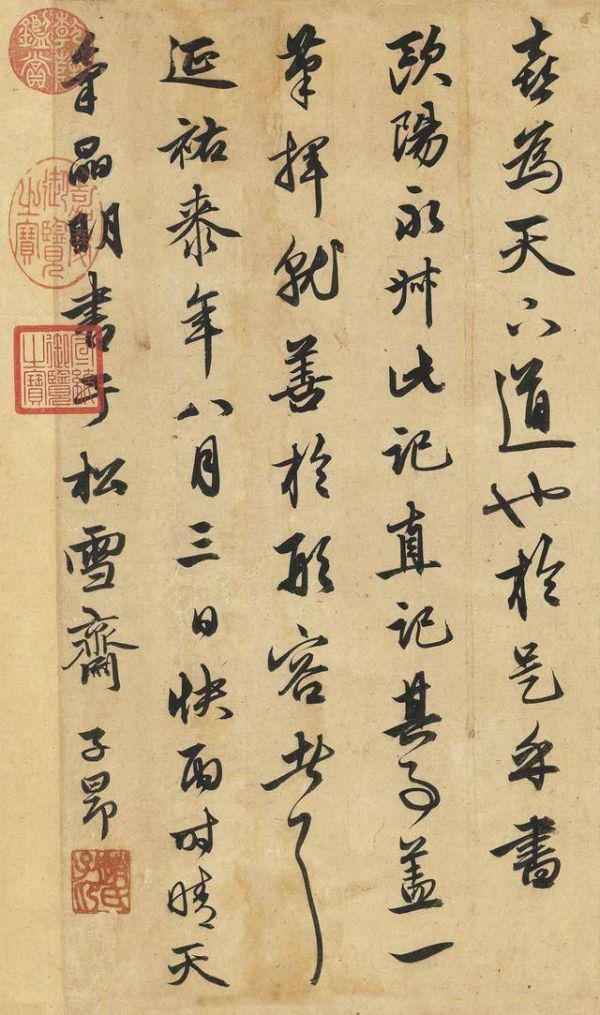 喜為天下道也於是乎書
歐陽永叔此記直記其事蓋一
筆揮就善於形容者耳
延祐桼年八月三日快雨時晴天
氣晶明書于松雪齋 子昂
乾隆鑑賞
嘉慶御覽之寶
宣統御覽之寶
趙氏子昂